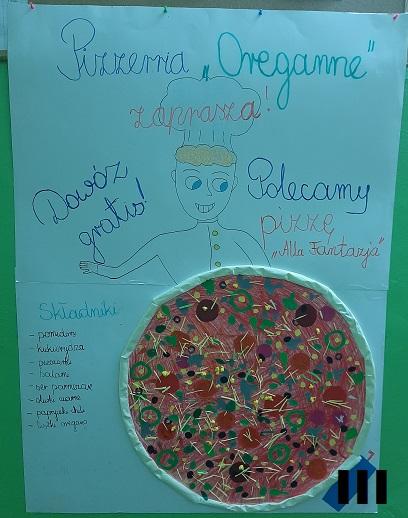 Pizzeria „Oreganne"
zaprasza!
Dowóz
gratis!
Polecamy
pizzę
„Alla Fantazja"
Składniki:
- pomidory
- kukurydza
- pieczarki
- salami
- ser parmezan
- oliwki czarne
- papryczki chili
- listki oregano